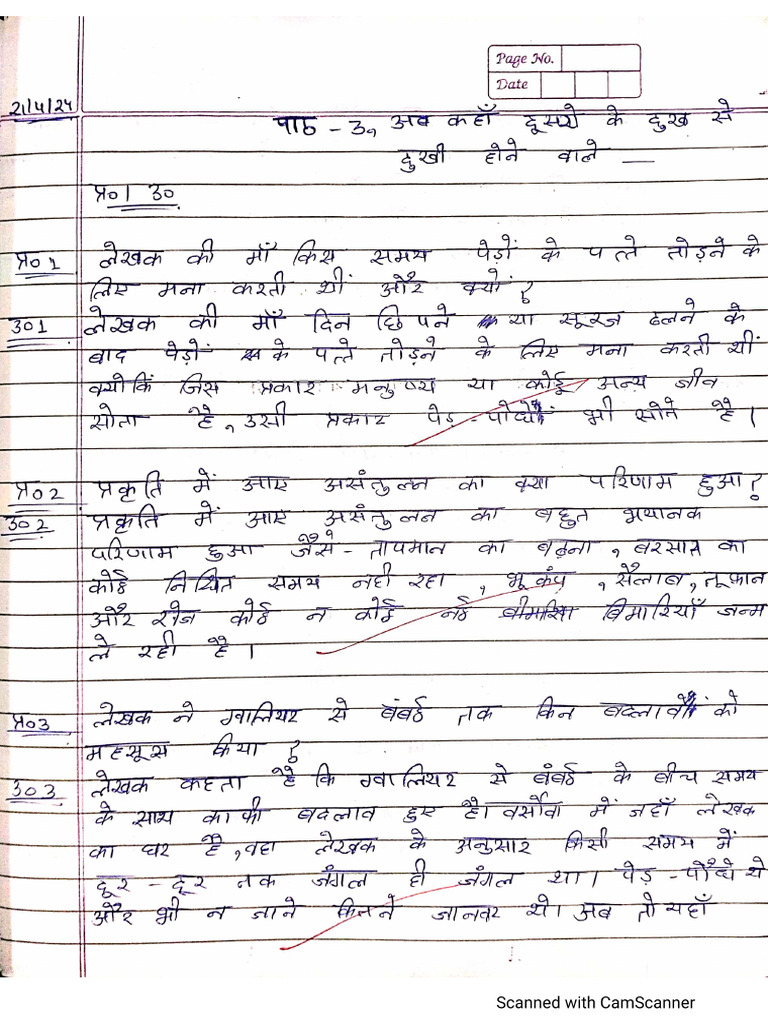 Page No.
Date
21/4/24
पाठ - 3, अब कहाँ दूसरों के दुख से
दुखी होने वाले —
प्र० / उ०
प्र० 1 लेखक की माँ किस समय पेड़ों के पत्ते तोड़ने के
लिए मना करती थीं और क्यों?
उ० 1 लेखक की माँ दिन छिपने या सूरज ढलने के
बाद पेड़ों के पत्ते तोड़ने के लिए मना करती थीं
क्योकिं जिस प्रकार मनुष्य या कोई अन्य जीव
सोता है, उसी प्रकार पेड़-पौधें भी सोते है।
प्र० 2 प्रकृति में आए असंतुलन का क्या परिणाम हुआ?
उ० 2 प्रकृति में आए असंतुलन का बहुत भयानक
परिणाम हुआ जैसे - तापमान का बढ़ना, बरसात का
कोई निश्चित समय नही रहा, भूकंप, सैलाब, तूफ़ान
और रोज कोई न कोई नई बिमारियाँ जन्म
ले रही है।
प्र० 3 लेखक ने ग्वालियर से बंबई तक किन बदलावों को
महसूस किया?
उ० 3 लेखक कहता है कि ग्वालियर से बंबई के बीच समय
के साथ काफी बदलाव हुए है। वर्सोवा में जहाँ लेखक
का घर है, वहा लेखक के अनुसार किसी समय में
दूर-दूर तक जंगल ही जंगल था। पेड़-पौधे थे
और भी न जाने कितने जानवर थे। अब तो यहाँ
Scanned with CamScanner